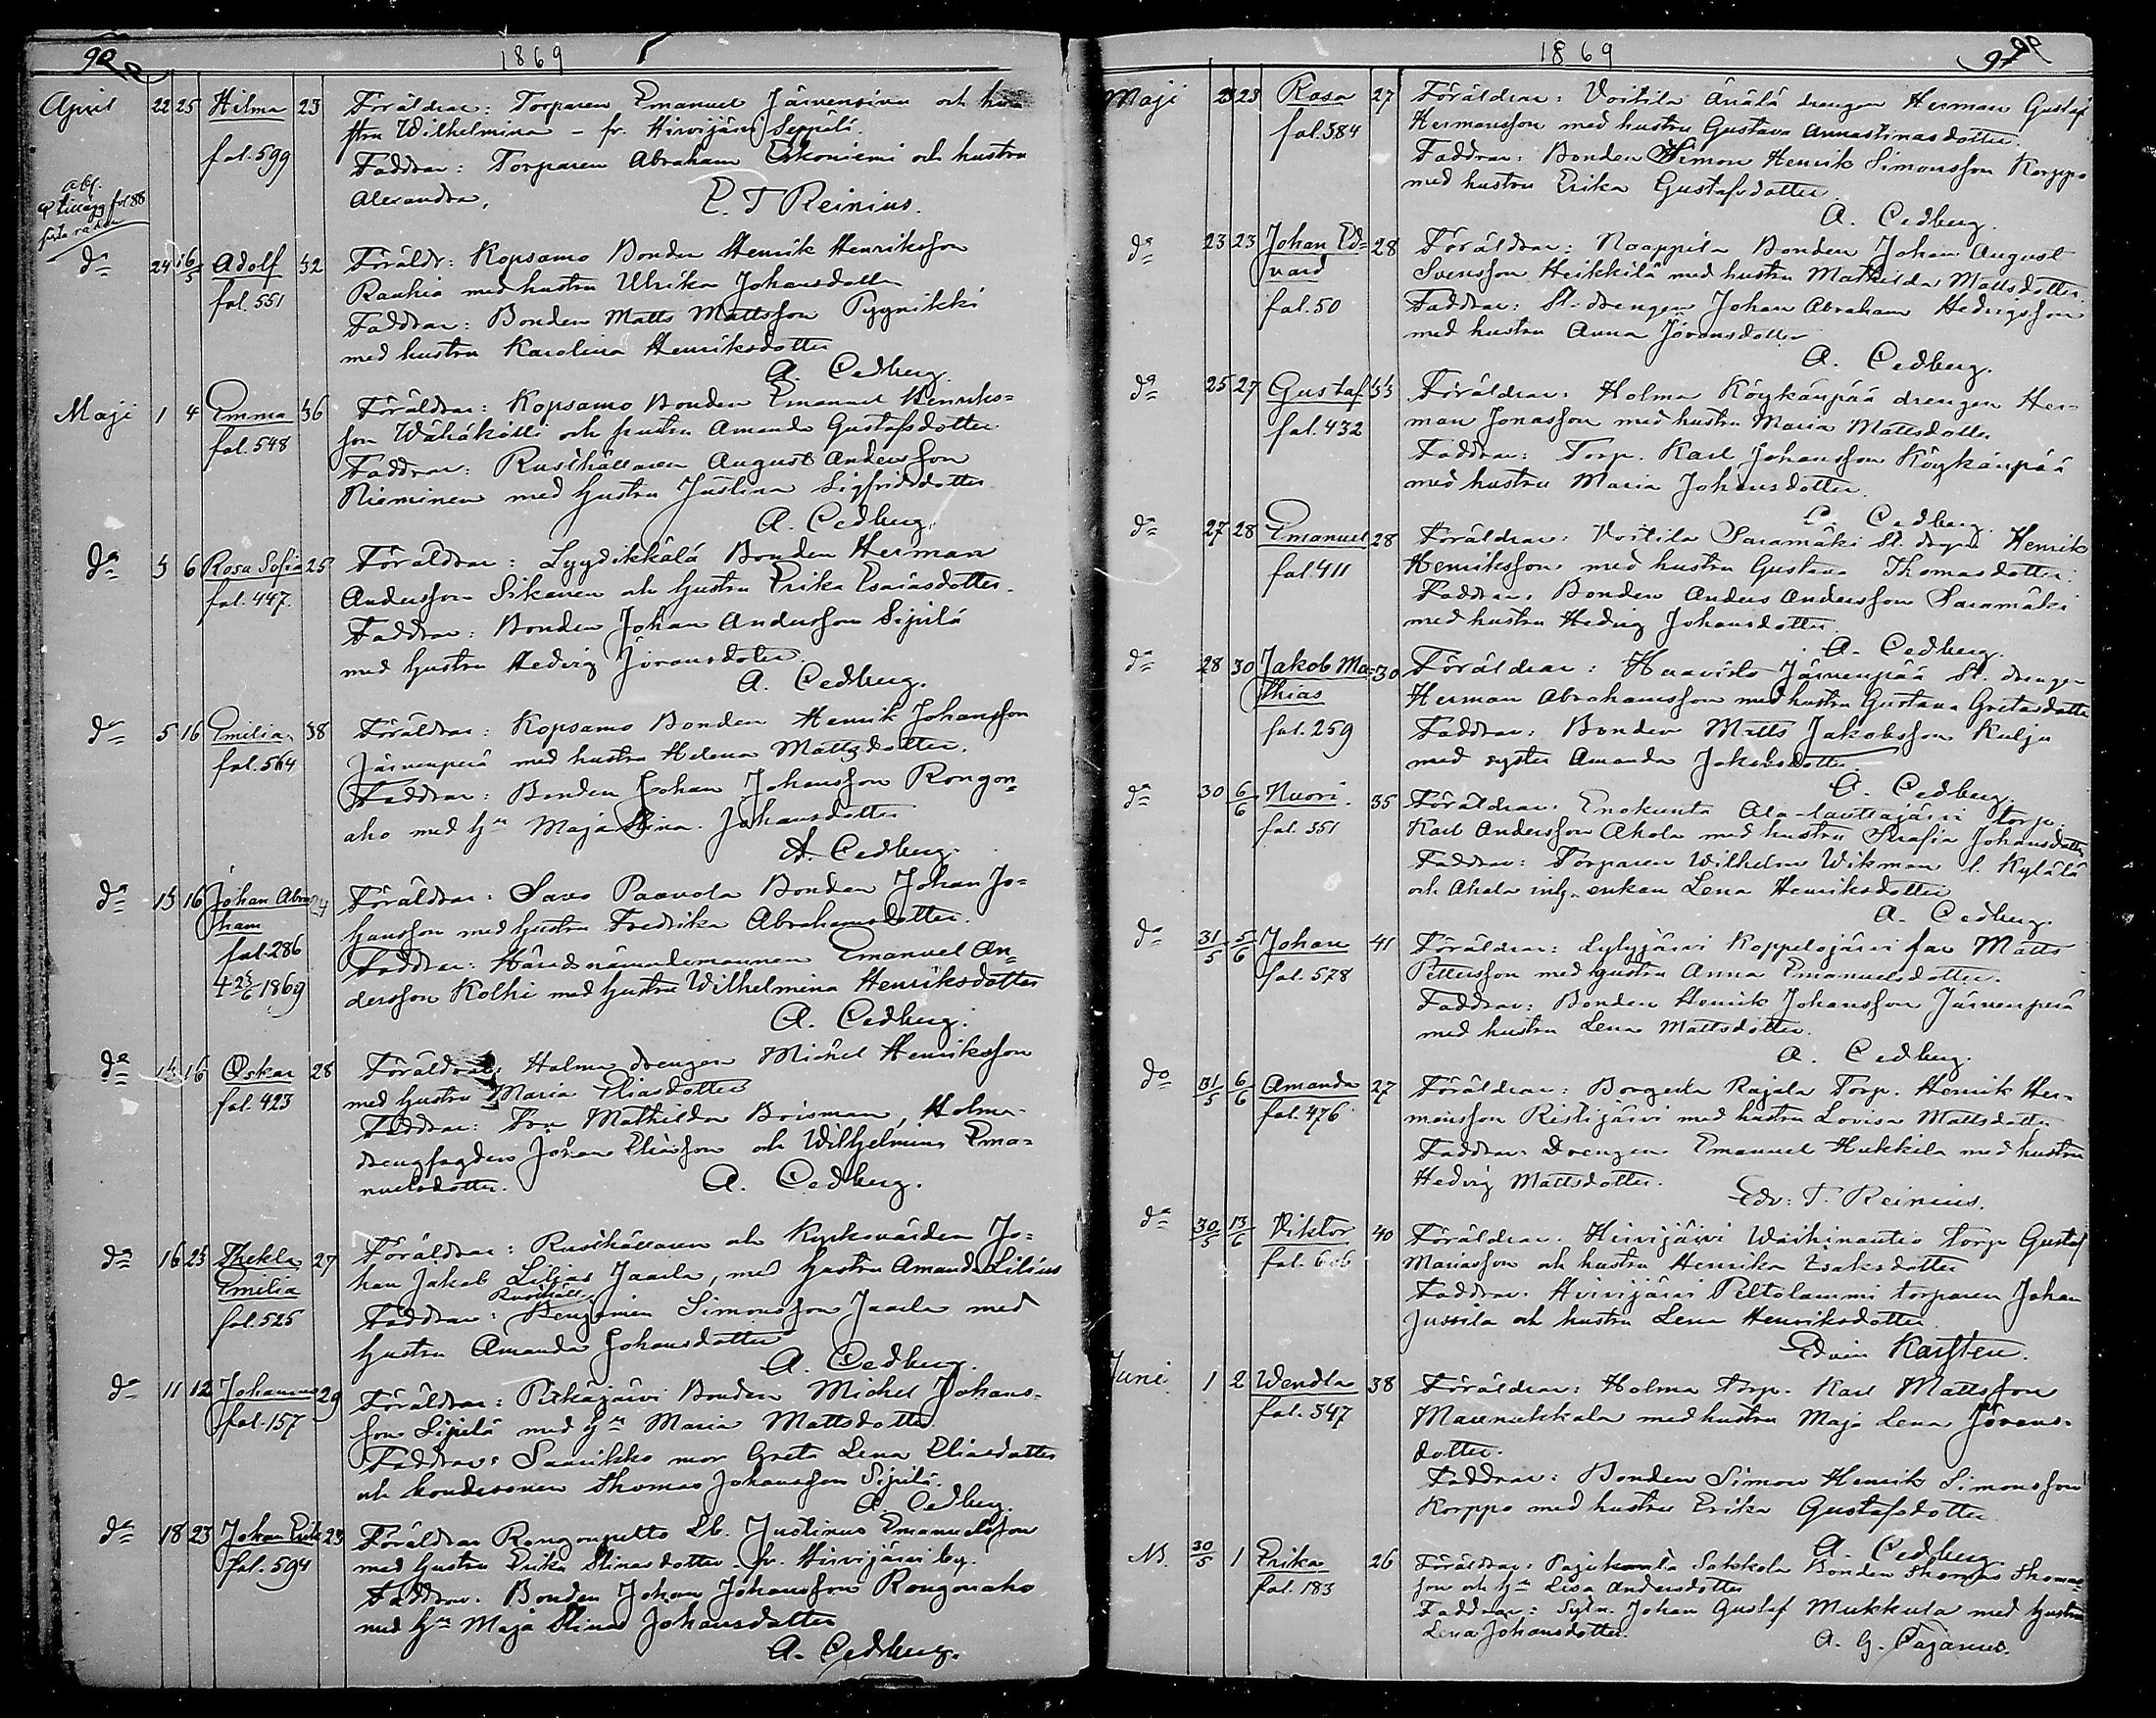 90
1869
April 22 25 Hilma 23 Föräldrar: Torparen Emanuel Järvensivu och hu
fal. 599 stru Wilhelmina - fr. Hirvijärvi Seppälä.
Faddrar: Torparen Abraham Eskoniemi och hustru
Alexandra, E. T Reinius.
tillägg fol 88
d:o 24 16/5 Adolf 32 Föräldr: Kopsamo Bonden Henrik Henriksson
fal. 551 Rauhia med hustru Ulrika Johansdotter
Faddrar: Bonden Matts Mattsson Pyynikki
med hustru Karolina Henriksdotter
A. Cedberg.
Maji 1 4 Emma 36 Föräldrar: Kopsamo Bonden Emanuel Henriks=
fal. 548 son Wähäkölli och hustru Amanda Gustafsdotter
Faddrar: Rusthållaren August Andersson
Nieminen med hustru Justina Sigfridsdotter
A. Cedberg.
d:o 3 6 Rosa Sofia 25 Föräldrar: Lyydikkälä Bonden Herman
fal. 447. Andersson Sikanen och hustru Erika Esaiasdotter.
Faddrar: Bonden Johan Andersson Sipilä
med hustru Hedvig Jöransdoter
A. Cedberg.
d:o 5 16 Emilia 38 Föräldrar: Kopsamo Bonden Henrik Johansson
fal. 564 Järvenperä med hustru Helena Mattsdotter.
Faddrar: Bonden Johan Johansson Rongon=
aho med h:u Maja Stina Johansdotter
A. Cedberg.
d:o 13 16 Johan Abra Föräldrar: Savo Paavola Bonden Johan Jo=
ham hansson med hustru Fredrika Abrahamsdotter.
fal. 286 Faddrar: Häradsnämndemannen Emanuel An=
23/6 1869 dersson Kolhi med hustru Wilhelmina Henriksdotter
A. Cedberg.
d:o 13 16 Oskar 28 Föräldrar: Holma drengen Michel Henriksson
fal. 423 med hustru Maria Eliasdotter
Faddrar: Fru Mathilda Boisman, Holma
drengfogden Johan Eliasson och Wilhelmina Ema=
nuelsdotter. A. Cedberg.
d:o 16 23 Thekla 27 Föräldrar: Rusthållaren och Kyrkovärden Jo=
Emilia han Jakob Lilius Jaarla, med hustru Amanda Lilius
fal. 525 Faddrar: Rusthåll. Benjamin Simonsson Jaarla med
hustru Amanda Johansdotter
A. Cedberg.
d:o 11 12 Johannes 29 Föräldrar: Pitkäjärvi Bonden Michel Johans=
fal. 157 son Sipilä med h:u Maria Mattsdotter
Faddrar: Saarikko mor Greta Lena Eliasdotter
och bondesonen Thomas Johansson Sipilä.
A. Cedberg.
d:o 18 23 Johan Erik 23 Föräldrar Rongonpelto Lb. Justinus Emanuelsson
fal. 594 med hustru Erika Stinasdotter - fr. Hirvijärvi by.
Faddrar. Bonden Johan Johansson Rongonaho
med h:u Maja Stina Johansdotter
A. Cedberg.
1869
91
Maji 23 23 Rosa 27 Föräldrar: Voitila Änälä drengen Herman Gustaf
fal. 384 Hermansson med hustru Gustava Annastinasdotter.
Faddrar: Bonden Simon Henrik Simonsson Korppo
med hustru Erika Gustafsdotter
A. Cedberg.
d:o 23 23 Johan Ed= 28 Föräldrar: Noappila Bonden Johan August
vard Svensson Heikkilä med hustru Mathilda Mattsdotter
fal. 50 Faddrar: St. drengen Johan Abraham Hedvigsson
med hustru Anna Jöransdotter
A. Cedberg.
d:o 25 27 Gustaf 33 Föräldrar: Holma Köykänpää drengen Her=
fal. 432 man Jonasson med hustru Maria Mattsdotter
Faddrar: Torp. Karl Johansson Köykänpää
med hustru Maria Johansdotter.
A. Cedberg.
d:o 27 28 Emanuel 28 Föräldrar: Voitila Saramäki St. dreng Henrik
fal. 411 Henriksson med hustru Gustava Thomasdotter.
Faddrar: Bonden Anders Andersson Saramäki
med hustru Hedvig Johansdotter
A. Cedberg.
d:o 28 30 Jakob Ma= 30 Föräldrar: Haavisto Järvenpää St. drengen
thias Herman Abrahamsson med hustru Gustava Gretasdotter
fal. 259 Faddrar: Bonden Matts Jakobsson Kulju
med syster Amanda Jakobsdotter.
A. Cedberg.
d:o 30 6/6 Nuori. 35 Föräldrar: Enokunta Ala-lauttajärvi torp.
fal. 351 Karl Andersson Ahola med hustru Serafia Johansdotter
Faddrar: Torparen Wilhelm Wikman l. Kylälä
och Ahola inh. enkan Lena Henriksdotter
A. Cedberg.
d:o 31/5 5/6 Johan 41 Föräldrar: Lylyjärvi Koppelojärvi far Matts
fal. 578 Pettersson med hustru Anna Emanuelsdotter.
Faddrar: Bonden Henrik Johansson Järvenperä
med hustru Lena Mattsdotter.
A. Cedberg.
d:o 31/5 6/6 Amanda 27 Föräldrar: Borgerla Rajala Torp. Henrik Her=
fal. 476 mansson Ristijärvi med hustru Lovisa Mattsdotter
Faddrar: Drengen Emanuel Hukkila med hustru
Hedvig Mattsdotter.
Edv: T. Reinius.
d:o 30/5 13/6 Viktor 40 Föräldrar: Hirvijärvi Waihinautio torp Gustaf
fal. 606 Mariasson och hustru Henrika Isaksdotter
Faddrar. Hirvijärvi Peltolammi torparen Johan
Jussila och hustru Lena Henriksdotter
Edvin Karsten.
Juni. 1 2 Wendla 38 Föräldrar: Holma Torp. Karl Mattsson
fal. 547 Maunukkala med hustru Maja Lena Jörens=
dotter.
Faddrar: Bonden Simon Henrik Simonsson
Korppo med hustru Erika Gustafsdotter
A. Cedberg.
N. 30/5 1 Erika 26 Föräldrar: Pajukanta Satokola Bonden Thomas Thomas=
fal. 183 son och h:u Lisa Andersdotter
Faddrar: Sytn. Johan Gustaf Mukkula med hustru
Lena Johansdotter. A. G. Paganus.